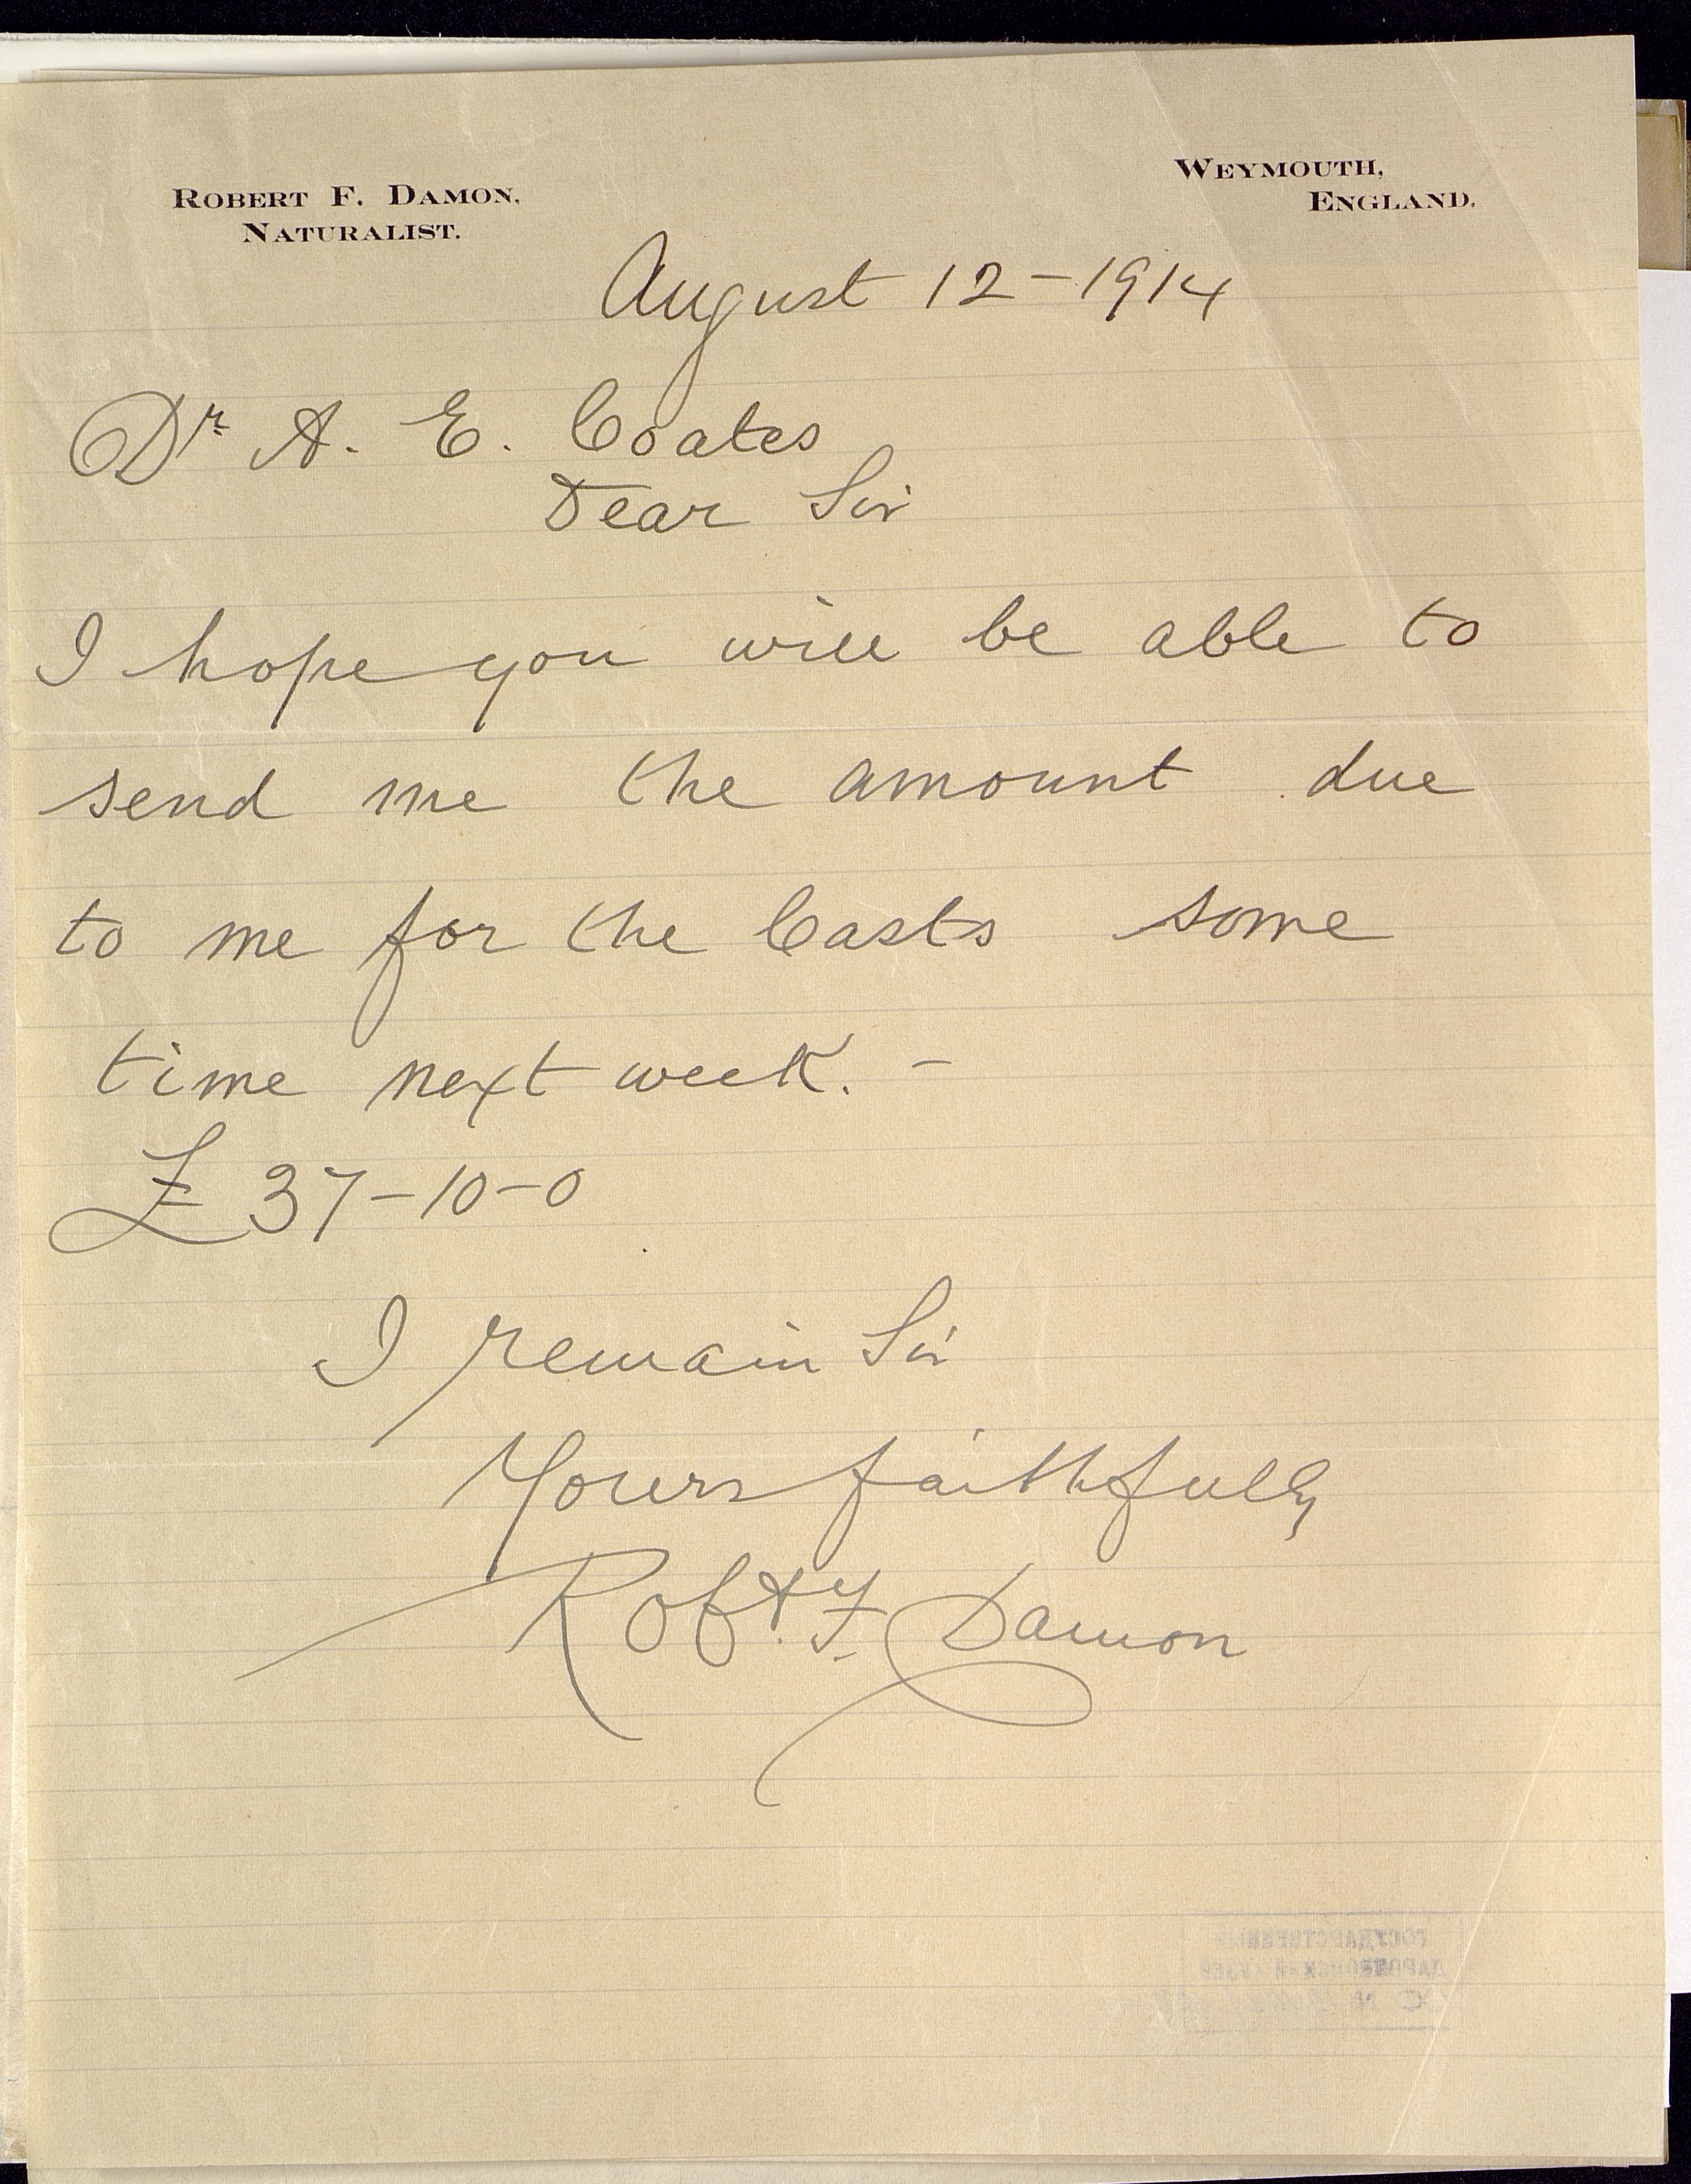 ROBERT F. DAMON,
NATURALIST.
WEYMOUTH,
ENGLAND.
August 12 - 1914
Dr A. E. Coates
Dear Sir
I hope you will be able to
send me the amount due
to me for the Casts some
time next week. -
£ 37-10-0
I remain Sir
Yours faithfully
Robt. F. Damon
ГОСУДАРСТВЕННЫЙ